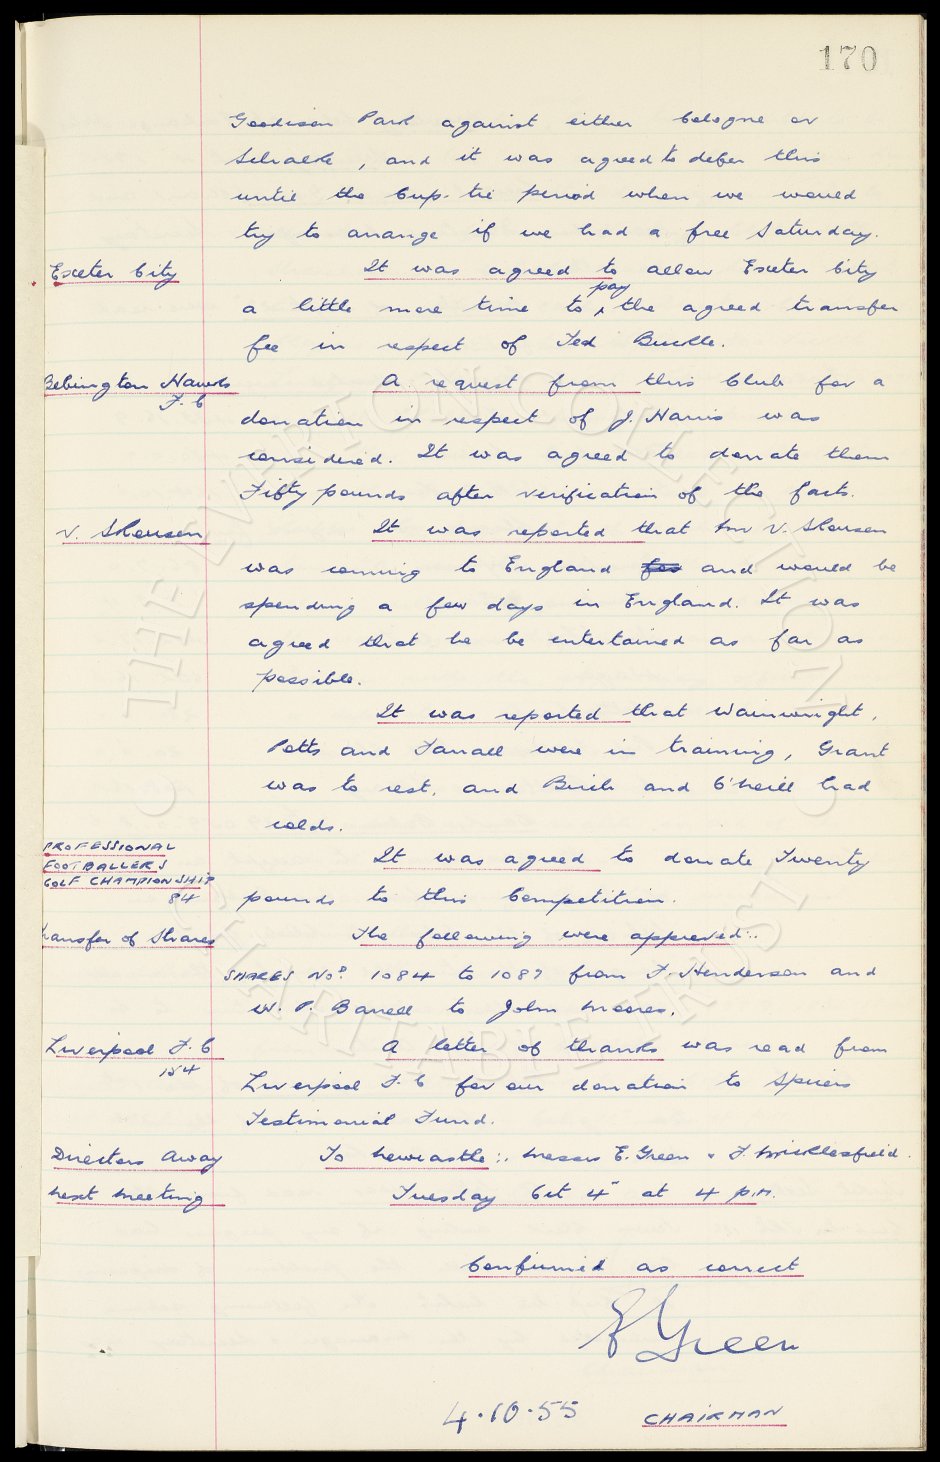 170
Goodison Park against either Cologne or
Schalke, and it was agreed to defer this
until the Cup-tie period when we would
try to arrange if we had a free Saturday.
Exeter City
It was agreed to allow Exeter City
a little more time to pay the agreed transfer
fee in respect of Ted Buckle.
Bebington Hawks
F.C
A request from this Club for a
donation in respect of J. Harris was
considered. It was agreed to donate them
Fifty pounds after verification of the facts.
V. Skousen
It was reported that Mr V. Skousen
was coming to England for and would be
spending a few days in England. It was
agreed that he be entertained as far as
possible.
It was reported that Wainwright,
Potts and Farrall were in training, Grant
was to rest, and Birch and O'Neill had
colds.
PROFESSIONAL
FOOTBALLERS
GOLF CHAMPIONSHIP
84
It was agreed to donate Twenty
pounds to this Competition.
Transfer of Shares
The following were approved:-
SHARES Nos. 1084 to 1087 from F. Henderson and
W. P. Barrell to John Moores.
Liverpool F.C
154
A letter of thanks was read from
Liverpool F.C for our donation to Spicers
Testimonial Fund.
Directors Away
To Newcastle:. Messrs E. Green & F. Micklesfield.
Next Meeting
Tuesday Oct 4" at 4 p.m.
Confirmed as correct
E Green
4.10.55
CHAIRMAN
THE EVERTON COLLECTION
CHARITABLE TRUST